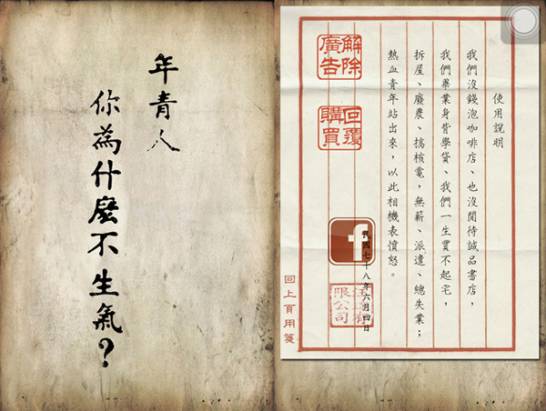 年青人
你為什麼不生氣?
使用說明
我們沒錢泡咖啡店、也沒閒待誠品書店,
我們畢業身背學貸、我們一生買不起宅,
拆屋、廢農、搞核電,無薪、派遣、總失業;
熱血青年站出來,以此相機表憤怒。
七十八年六月四日
解除
廣告
回覆
購買
f
限公司
回上頁用箋